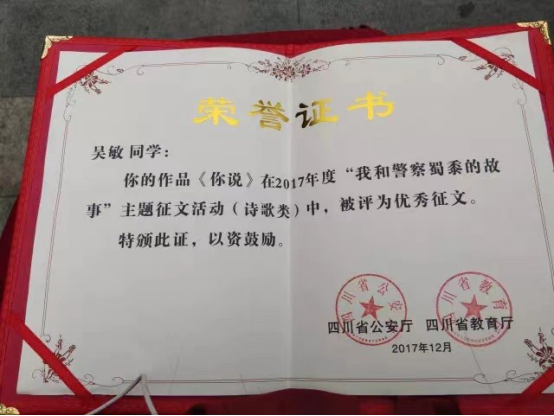 荣誉证书
吴敏同学：
你的作品《你说》在2017年度“我和警察蜀黍的故
事”主题征文活动（诗歌类）中，被评为优秀征文。
特颁此证，以资鼓励。
四川省公安厅 四川省教育厅
2017年12月